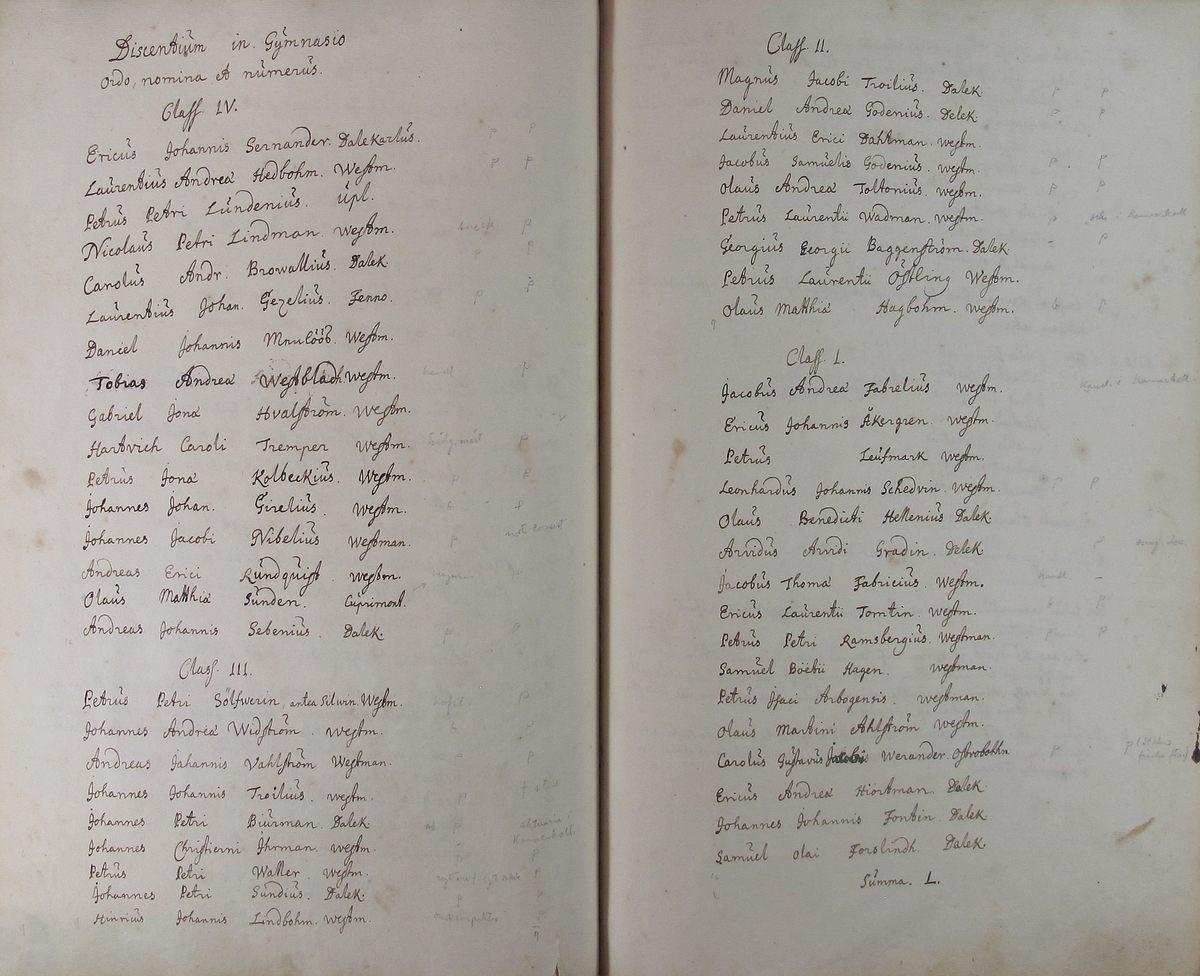 Discentium in Gymnasio
Ordo, nomina et numerus.
Class. IV.
Ericus Johannis Sernander. Dalekarlus.
Laurentius Andreæ Hedbohm. Westm.
Petrus Petri Lundenius. Upl.
Nicolaus Petri Lindman. Westm.
Carolus Andr. Browallius. Dalek.
Laurentius Johan. Gezelius. Fenno.
Daniel Johannis Westm.
Tobias Andreæ Westblad. Westm.
Gabriel Jonæ Hvalström. Westm.
Hartvich Caroli Tremper Westm.
Petrus Jonæ Kolbeckius. Westm.
Johannes Johan. Girelius. Westm.
Johannes Jacobi Nibelius Westman.
Andreas Erici Rundquist. Westm.
Olaus Matthiæ Sunden. Cuprimont.
Andreas Johannis Sebenius. Dalek.
Class. III.
Petrus Petri Sölfwerin, antea Silwin. Westm.
Johannes Andreæ Widström. Westm.
Andreas Johannis Vahlström Westman.
Johannes Johannis Troilius. Westm.
Johannes Petri Biurman. Dalek.
Johannes Christierni Ihrman. Westm.
Petrus Petri Waller. Westm.
Johannes Petri Sundius. Dalek.
Hinricus Johannis Lindbohm. Westm.
Class. II.
Magnus Jacobi Troilius. Dalek.
Daniel Andreæ Godenius. Dalek.
Laurentius Erici Dahlman. Westm.
Jacobus Samuelis Godenius. Westm.
Olaus Andreæ Toltonius. Westm.
Petrus Laurentii Wadman. Westm.
Georgius Georgii Baggenström. Dalek.
Petrus Laurentii Östling Westm.
Olaus Matthiæ Hagbohm. Westm.
Class. I.
Jacobus Andreæ Fabrelius Westm.
Ericus Johannis Åkergren. Westm.
Petrus Leufmark Westm.
Leonhardus Johannis Schedvin. Westm.
Olaus Benedicti Hellenius Dalek.
Arvidus Arvidi Gradin. Dalek.
Jacobus Thomæ Fabricius. Westm.
Ericus Laurentii Tomtin. Westm.
Petrus Petri Ramsbergius. Westman.
Samuel Boëtii Hagen Westman.
Petrus Isaci Arbogensis. Westman.
Olaus Martini Ahlström Westm.
Carolus Gustavus Jacobi Werander. Ostrobothn.
Ericus Andreæ Hiortman. Dalek.
Johannes Johannis Fontin. Dalek.
Samuel Olai Forslindh. Dalek.
Summa. L.